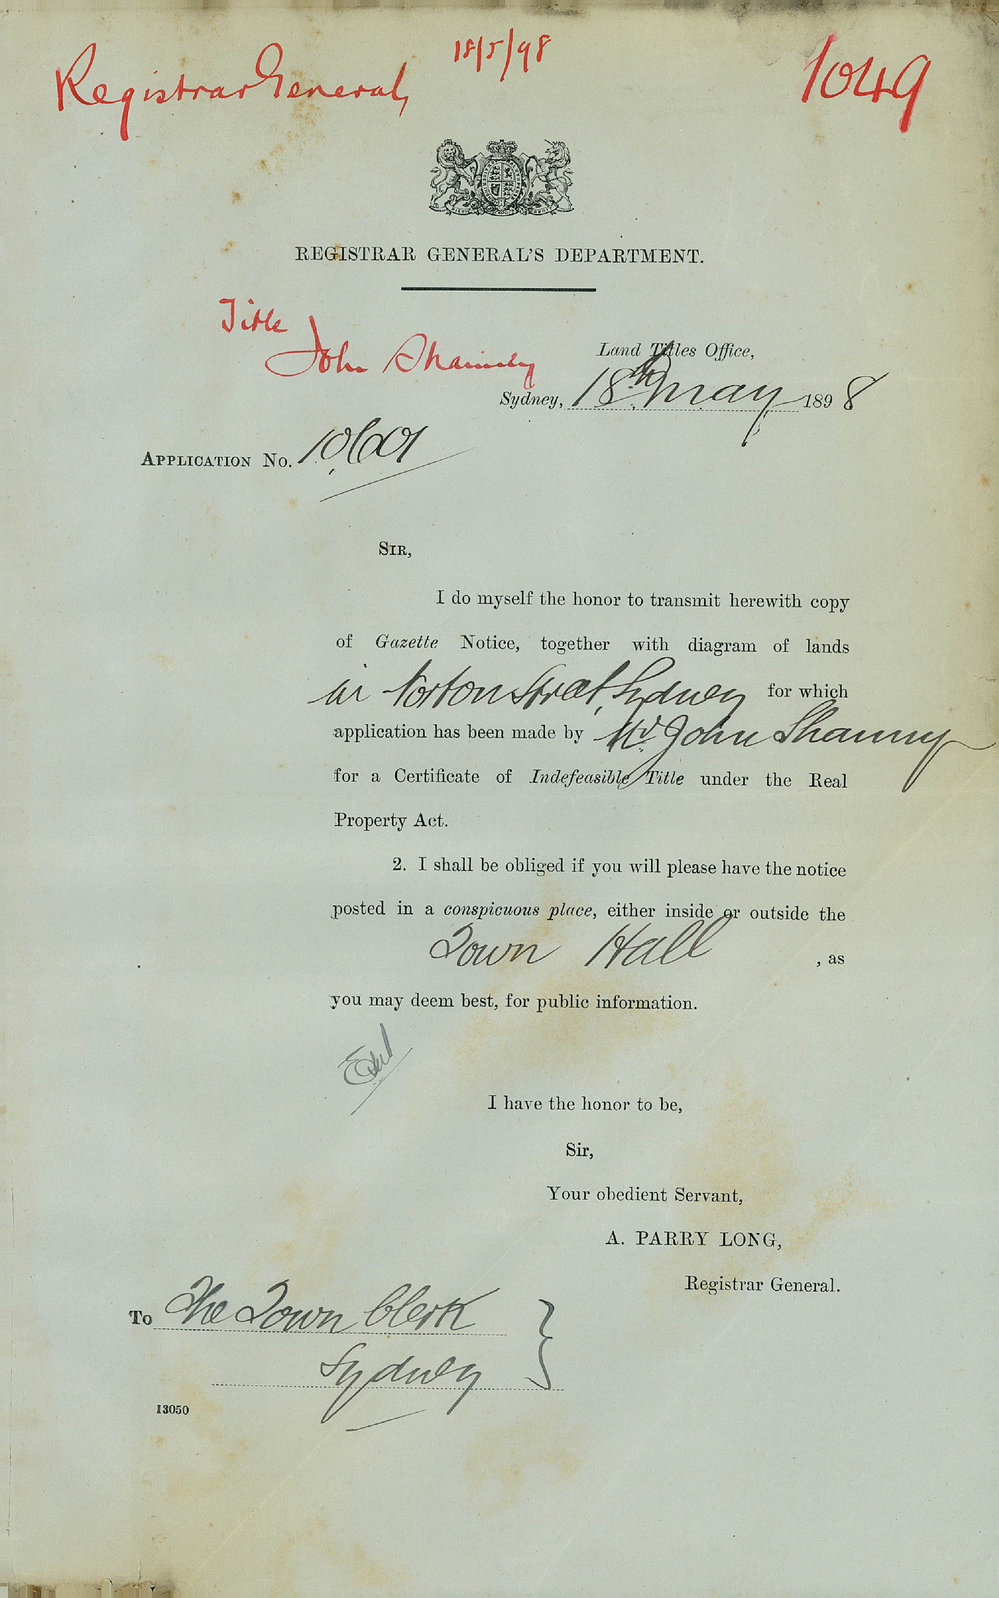 18/5/98
Registrar General,
1049
REGISTRAR GENERAL'S DEPARTMENT.
Title
John
Land Titles Office,
Sydney, 18th May 1898
APPLICATION No. 10601
SIR,
I do myself the honor to transmit herewith copy
of Gazette Notice, together with diagram of lands
in Norton Street, Sydney for which
application has been made by Mr. John
for a Certificate of Indefeasible Title under the Real
Property Act.
2. I shall be obliged if you will please have the notice
posted in a conspicuous place, either inside or outside the
Town Hall , as
you may deem best, for public information.
I have the honor to be,
Sir,
Your obedient Servant,
A. PARRY LONG,
Registrar General.
To The Town Clerk
Sydney
13050